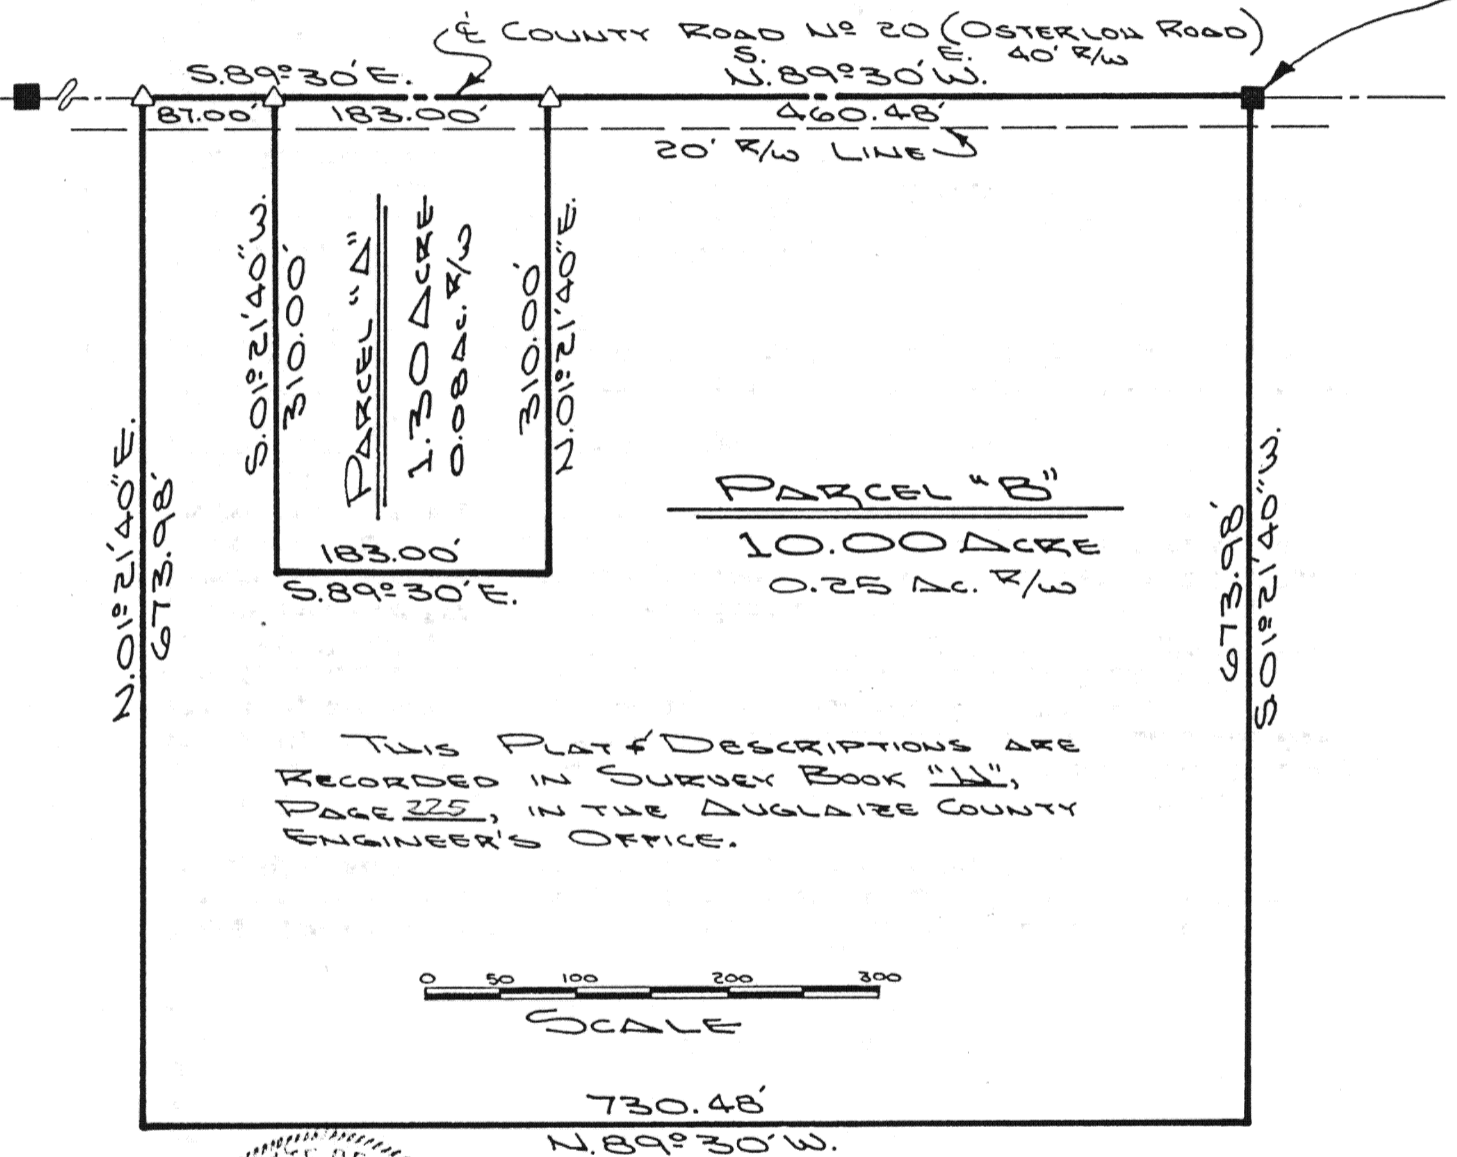 ℄ COUNTY ROAD Nº 20 (OSTERLOH ROAD)
40' R/W
S. E.
S.89º30'E.
N.89º30'W.
87.00'
183.00'
460.48'
20' R/W LINE
S.01º21'40"W.
310.00'
PARCEL "A"
1.30 ACRE
0.08 AC. R/W
310.00'
N.01º21'40"E.
183.00'
S.89º30'E.
N.01º21'40"E.
673.98'
PARCEL "B"
10.00 ACRE
0.25 AC. R/W
673.98'
S.01º21'40"W.
THIS PLAT & DESCRIPTIONS ARE
RECORDED IN SURVEY BOOK "H",
PAGE 225, IN THE AUGLAIZE COUNTY
ENGINEER'S OFFICE.
0 50 100 200 300
SCALE
730.48'
N.89º30'W.